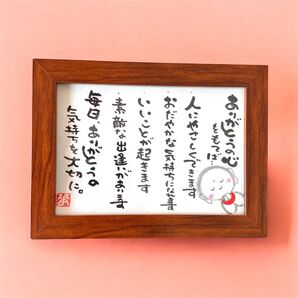 ありがとうの心
をもてば…
・人にやさしくできます
・おだやかな気持ちになれます
・いいことが起きます
・素敵な出逢いがあります
毎日、ありがとうの
気持ちを大切に。